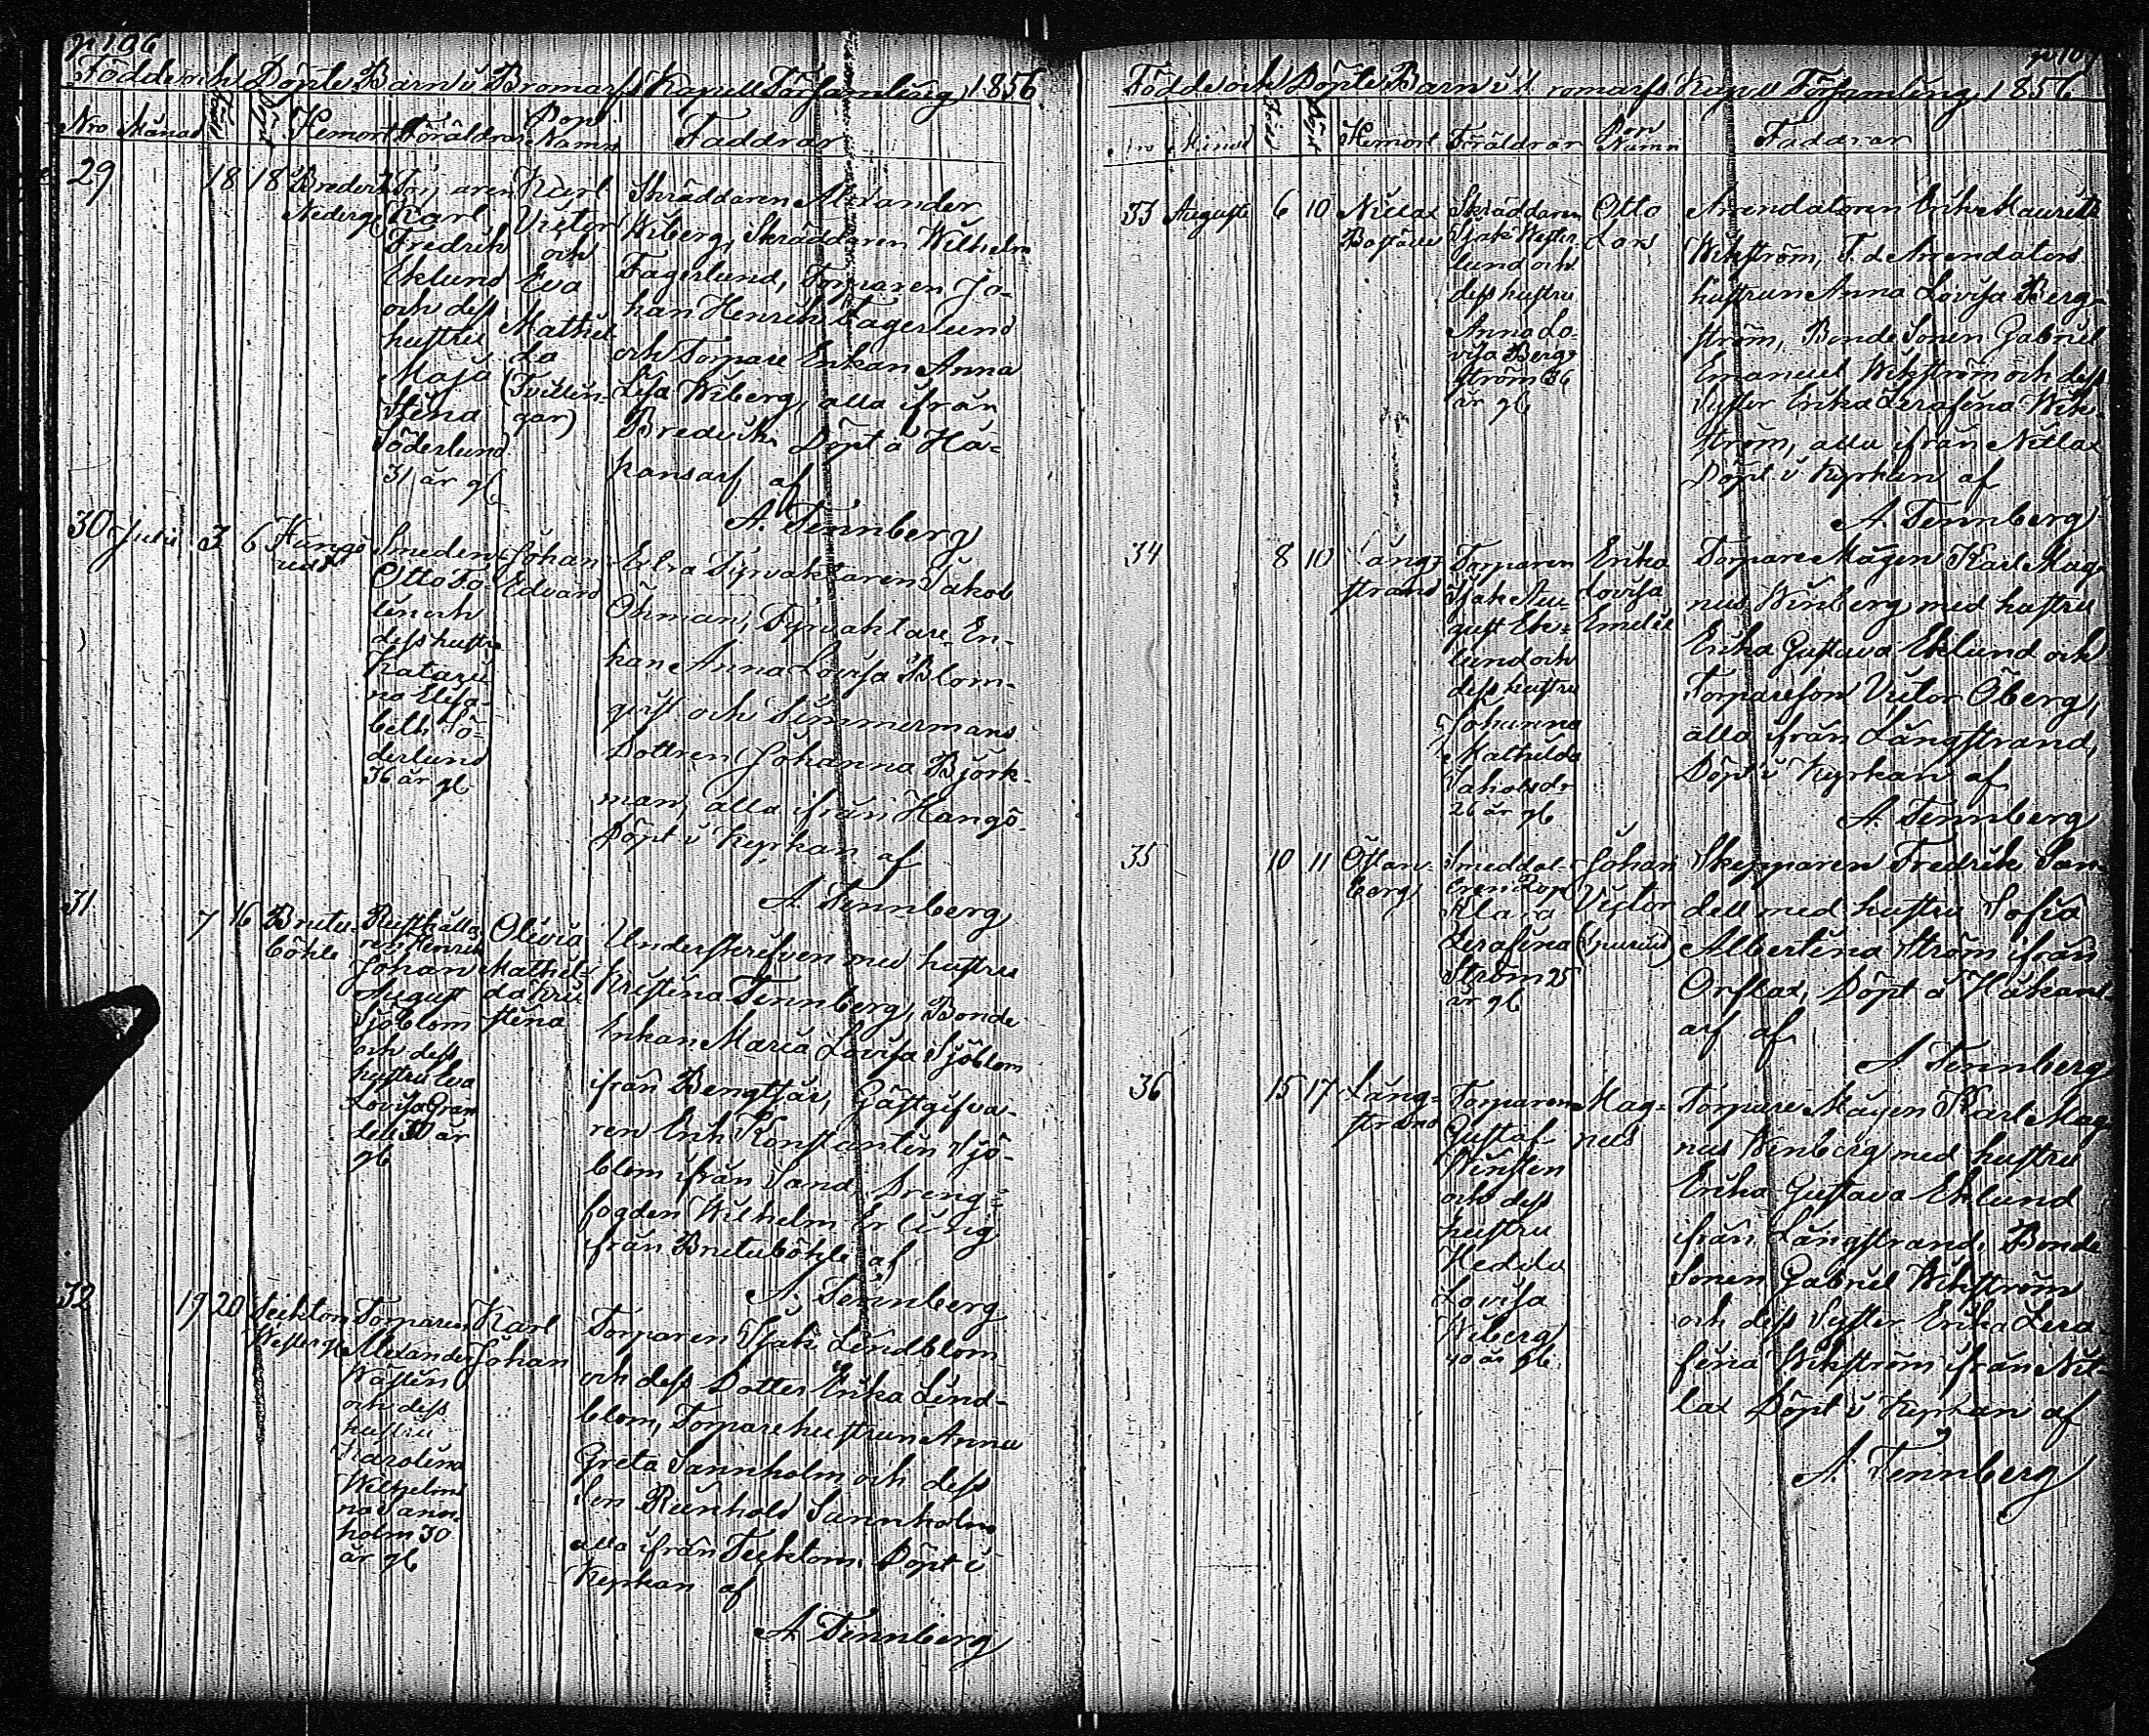 p 106
Födde och Döpte Barn i Bromarf Kapell Församling 1856
Nro Månad Född Döpt Hemort Föräldrar Dop Namn Faddrar
29 18 18 Bredvik Nederg.
Torparen
Karl
Fredrik
Eklund
och dess
hustru
Maja
Stina
Söderlund
31 år gl
Karl
Victor
och
Eva
Mathil-
da
(Tvillin-
gar)
Skräddaren Alexander
Wiberg, Skräddaren Wilhelm
Fagerlund, Torparen Jo-
han Henrik Fagerlund
och Torpare Enkan Anna
Lisa Wiberg, alla ifrån
Bredvik Döpt å Hå-
kansarf af
A. Tennberg
30 Julii 3 6 Hangö
udd
Smeden
Otto Fo-
lin och
dess hustru
Katari
na Elisa-
beth Sö-
derlund
36 år gl
Johan
Edvard
Extra Fyrvaktaren Jakob
Öhman, Fyrvaktare En-
kan Anna Lovisa Blom-
qvist och Timmermans
Dottren Johanna Björk-
man, alla ifrån Hangö.
Döpt i Kyrkan af
A. Tennberg
31 7 16 Bretu-
böhle
Rusthålla-
ren Henrik
Johan
August
Sjöblom
och dess
hustru Eva
Lovisa Gran
dell 30 år
gl
Olivia
Mathil-
da Kri
stina
Underskrifven med hustru
Kristina Tennberg, Bonde
Enkan Maria Lovisa Sjöblom
ifrån Bengtsår, Gästgifva-
ren Erik Konstantin Sjö-
blom ifrån Sand, Dreng-
fogden Wilhelm Erling
från Bretuböhle af
A. Tennberg
32 19 20 Tecktom
Westerg.
Torparen
Alexander
Wastén
och dess
hustru
Karolina
Wilhelmi
na Sann-
holm 30
år gl
Karl
Johan
Torparen Isak Lindblom
och dess Dotter Erika Lind-
blom, Torparehustrun Anna
Greta Sannholm och dess
Son Reinhold Sannholm
alla ifrån Tecktom. Döpt i
Kyrkan af
A. Tennberg
p 107
Födde och Döpte Barn i Bromarfs Kapell Församling 1856
Nro Månad Född Döpt Hemort Föräldrar Dop Namn Faddrar
33 Augusti 6 10 Nitlax
Skräddaren
Isak Wester-
lund och
dess hustru
Anna Lo-
visa Berg-
ström 36
år gl
Otto
Lars
Arrendatoren Erik Mauritz
Wikström, F. d. Arrendators
hustrun Anna Lovisa Berg-
ström, Bonde Sonen Gabriel
Emanuel Wikström och dess
Syster Erika Serafina Wik-
ström, alla ifrån Nitlax
Döpt i Kyrkan af
A. Tennberg
34 8 10 Lång-
strand
Torparen
Isak Au-
gust Ek-
lund och
dess hustru
Johanna
Mathilda
Jakobsdr
26 år gl
Erika
Lovisa
Emilie
Torpare Mågen Karl Mag-
nus Winberg med hustru
Erika Gustava Eklund och
Torpareson Victor Öberg,
alla ifrån Långstrand,
Döpt i Kyrkan af
A. Tennberg
35 10 11 Östan-
berg
Smeddot-
tren
Klara
Serafina
Ström 25
år gl
Johan
Victor
Skepparen Fredrik San-
dell med hustru Sofia
Albertina Ström ifrån
Orslax, Döpt å Håkans
arf af
A. Tennberg
36 15 17 Lång-
strand
Torparen
Gustaf
Winstén
och dess
hustru
Hedda
Lovisa
Wiberg
40 år gl.
Mag-
nus
Torpare Mågen Karl Mag
nus Winberg med hustru
Erika Gustava Eklund
ifrån Långstrand, Bonde
Sonen Gabriel Wikström
och dess Syster Erika Sera
fina Wikström ifrån Nit-
lax Döpt i Kyrkan af
A. Tennberg